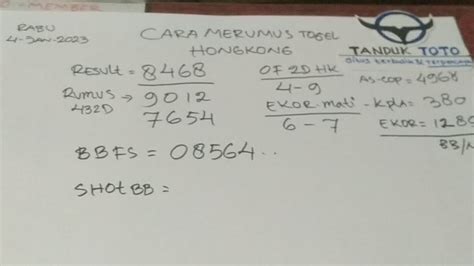 O - MEMBER
RABU
4-JAN-2023
CARA MERUMUS TOGEL
HONGKONG
TANDUK TOTO
Situs terbaik & terpercaya
RESULT = 8468
OF 2D HK
4-9
AS-COP = 4968
RUMUS → 9012
432D
7654
EKOR mati - KPLA = 380
6-7
EKOR = 1289
BB/
BBFS = 08564..
SHOT BB =